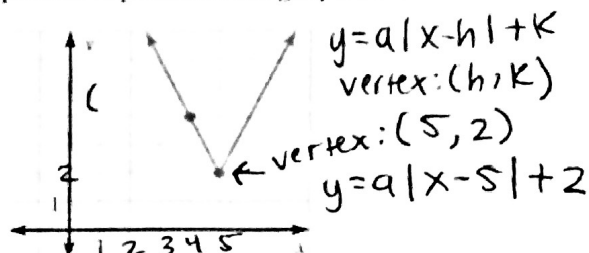 y=a|x-h|+K
vertex:(h,K)
(
vertex:(5,2)
y=a|x-5|+2
2
1
1 2 3 4 5